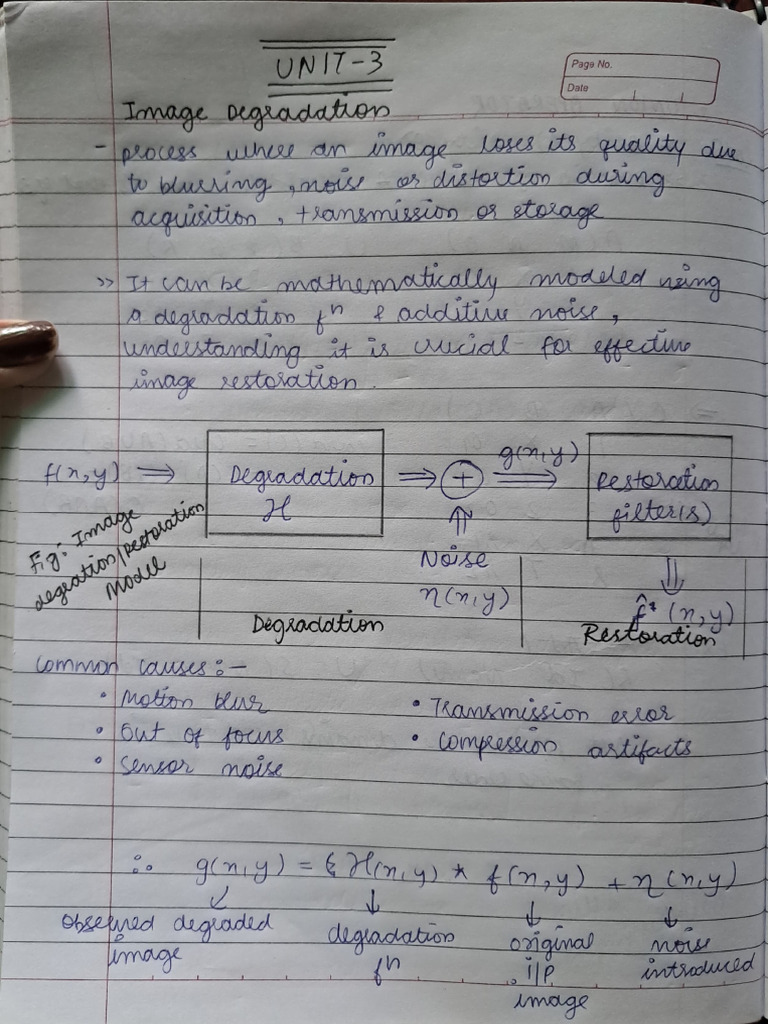 UNIT-3
Page No.
Date
Image Degradation
- process where an image loses its quality due
to blurring, noise or distortion during
acquisition, transmission or storage
>> It can be mathematically modeled using
a degradation fⁿ & additive noise,
understanding it is crucial for effective
image restoration.
f(x,y) ⇒ Degradation H ⇒ + g(x,y) ⇒ Restoration filter(s)
Fig: Image
degration/restoration
Model
Noise
η(x,y)
f̂*(x,y)
Degradation
Restoration
common causes:-
• Motion blur
• Transmission error
• Out of focus
• compression artifacts
• Sensor noise
∴ g(x,y) = H(x,y) * f(x,y) + η(x,y)
observed degraded
image
degradation
fⁿ
original
i/p
image
noise
introduced